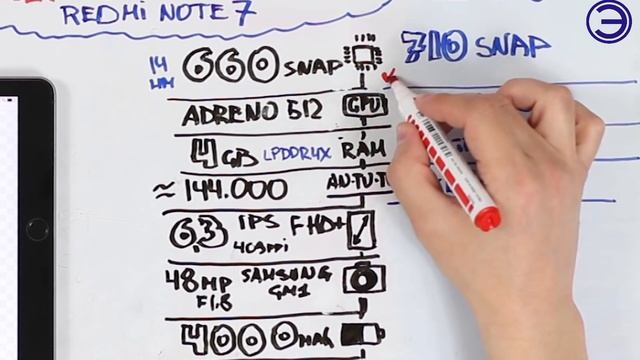 REDMI NOTE 7
14 НМ 660 SNAP
710 SNAP
ADRENO 512 GPU
4GB LPDDR4X RAM
≈ 144.000 AN-TU-T
6,3 IPS FHD+
409ppi
48MP SAMSUNG
F1.8 GM1
4000MAH
Э